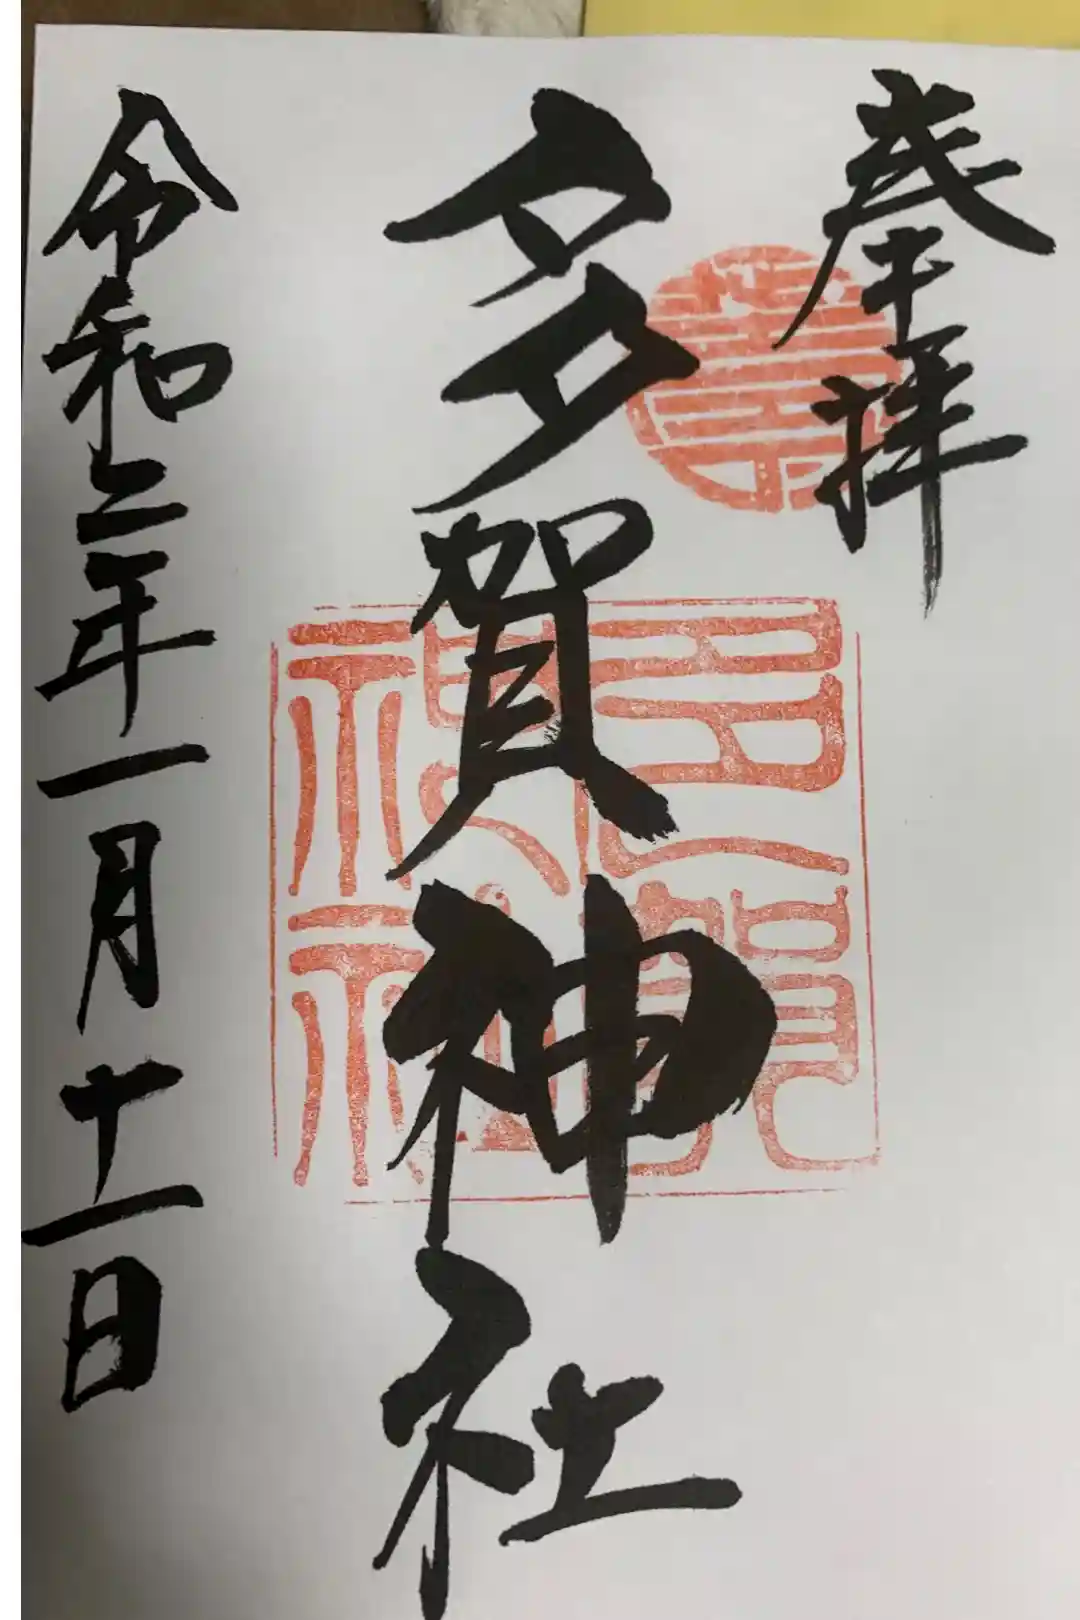 奉拝
多賀神社
多賀神社
令和二年一月十一日